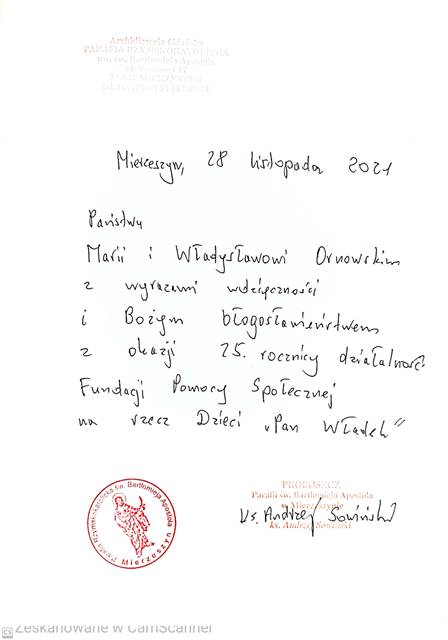 Archidiecezja Gdańska
PARAFIA RZYMSKOKATOLICKA
pw. św. Bartłomieja Apostoła
Mierzeszyn, 28 listopada 2021
Państwu
Marii i Władysławowi Ornowskim
z wyrazami wdzięczności
i Bożym błogosławieństwem
z okazji 25. rocznicy działalności
Fundacji Pomocy Społecznej
na rzecz Dzieci „Pan Władek”
PROBOSZCZ
Parafii św. Bartłomieja Apostoła
w Mierzeszynie
ks. Andrzej Sowiński
Ks. Andrzej Sowiński
Parafia Rzymsko-katolicka św. Bartłomieja Apostoła
Mierzeszyn
CS Zeskanowane w CamScanner